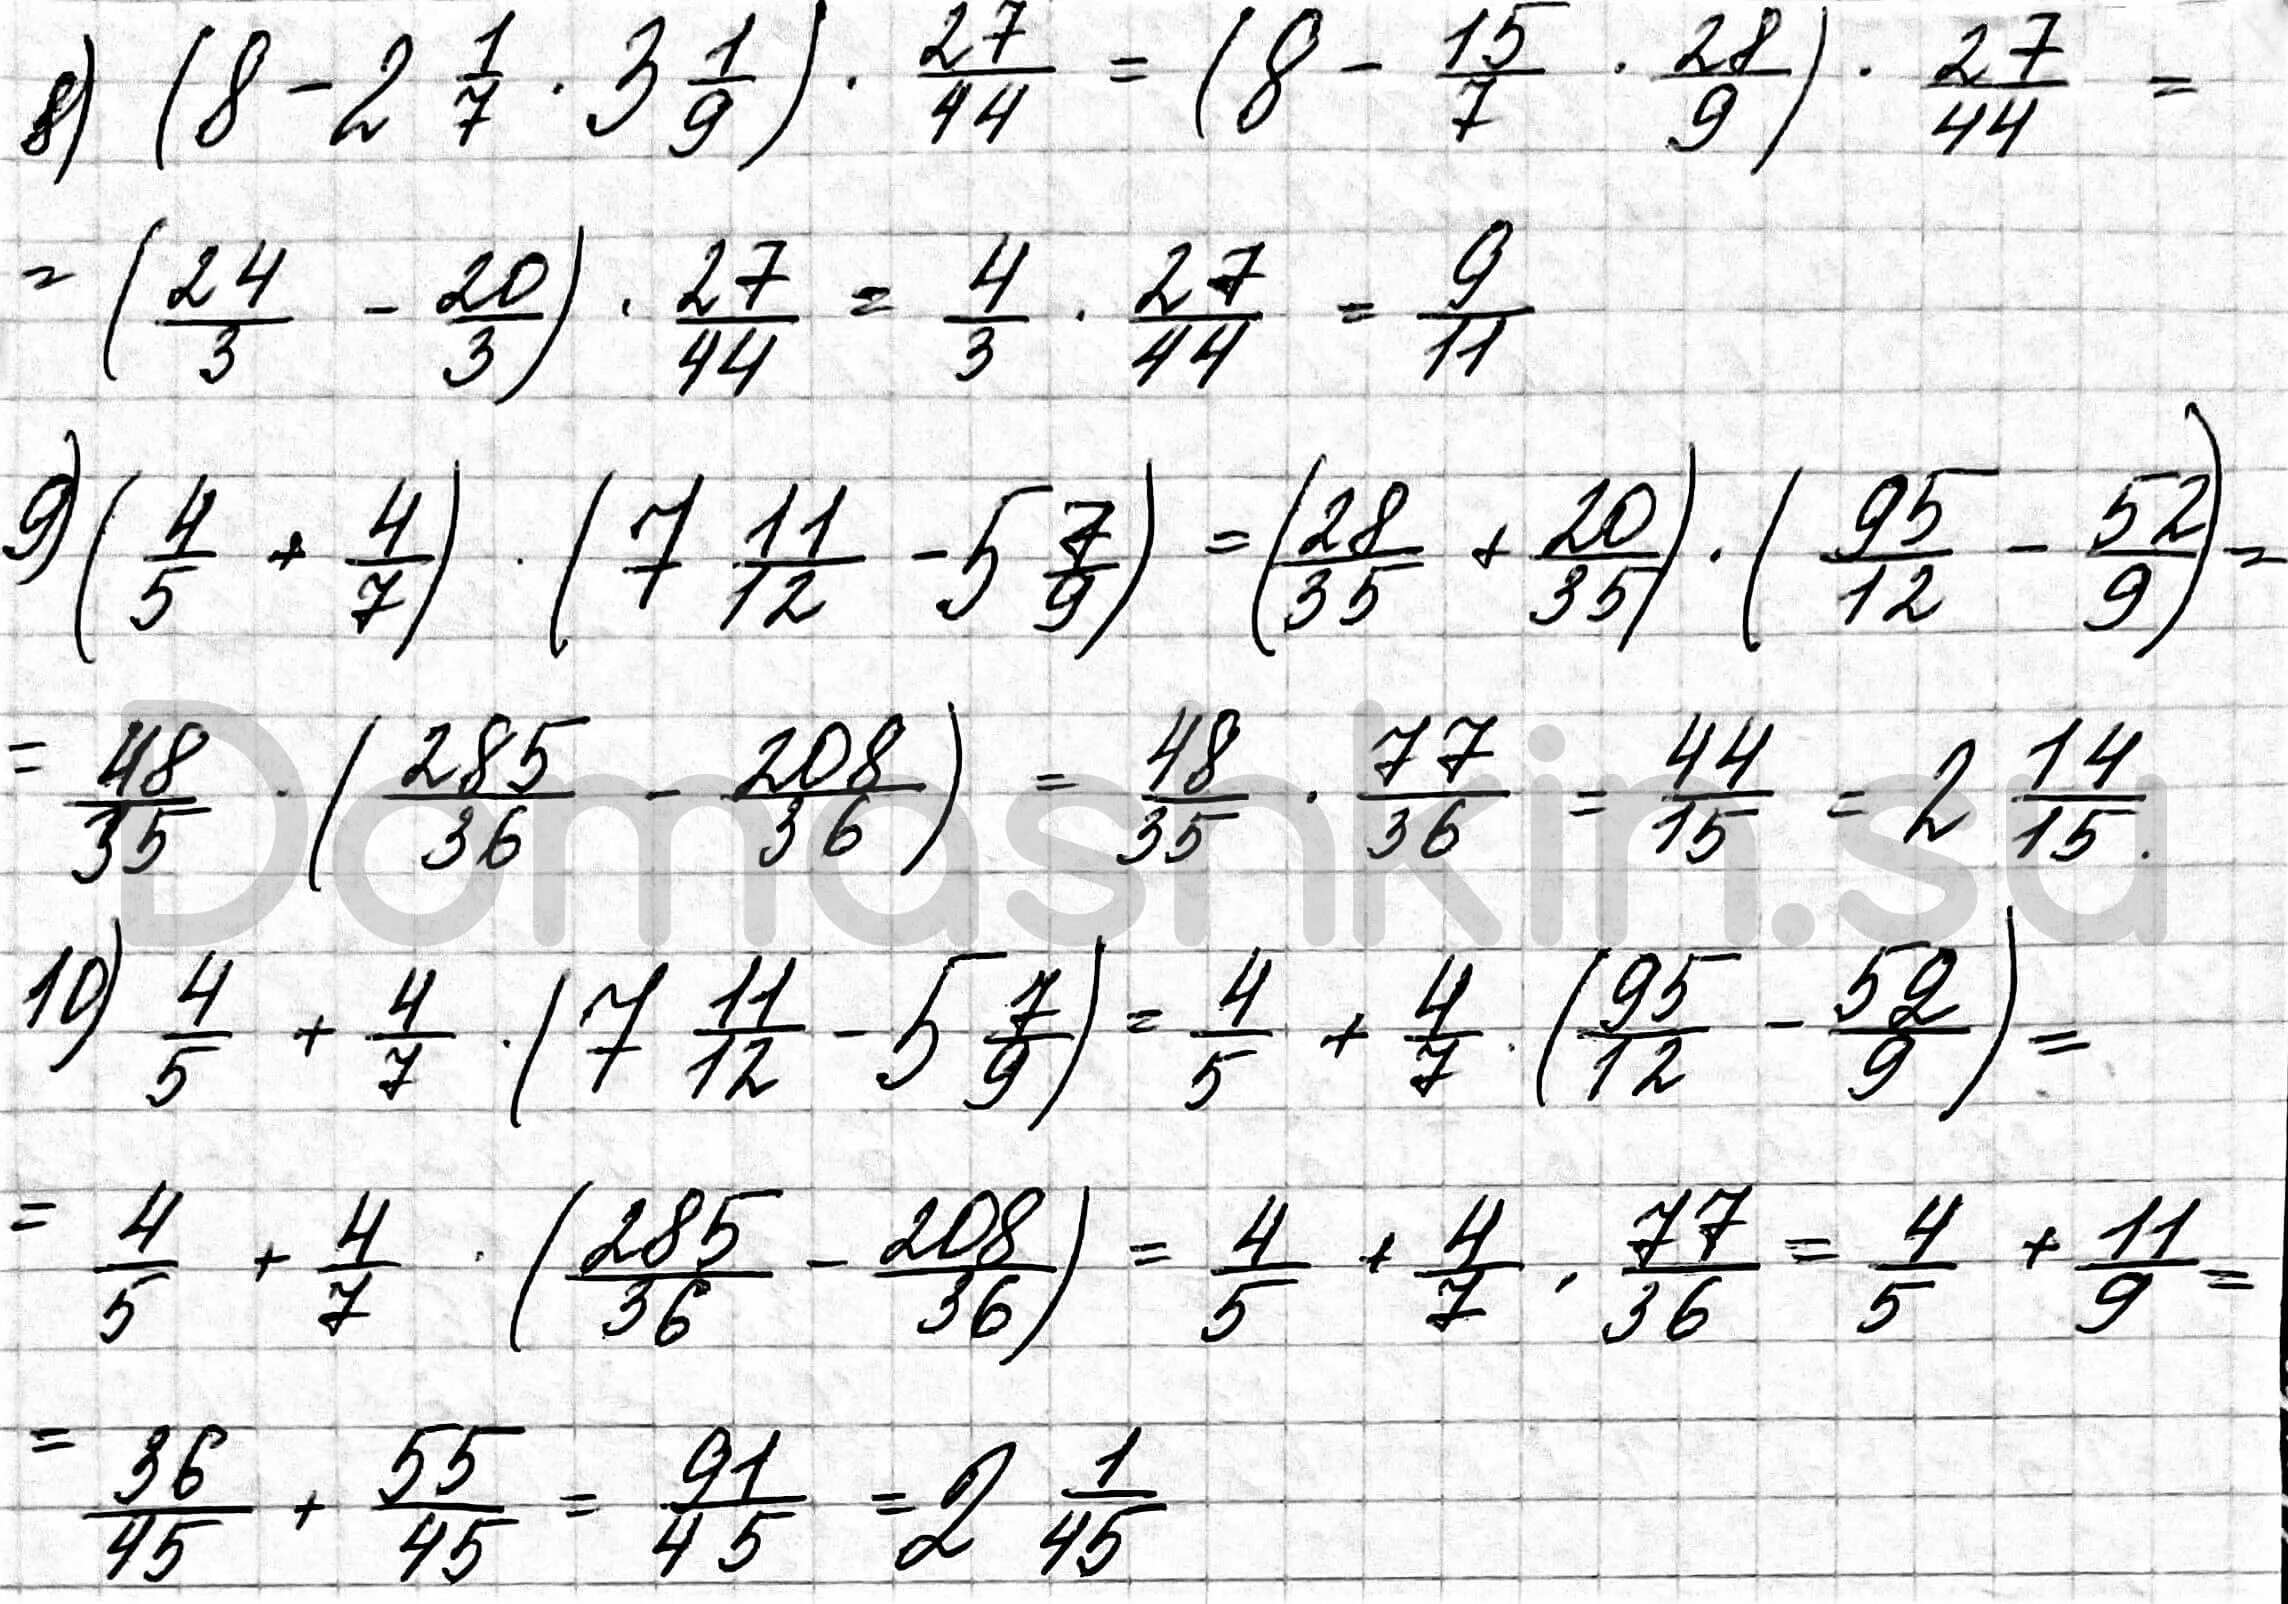 8) (8 - 2 1/7 · 3 1/9) · 27/44 = (8 - 15/7 · 28/9) · 27/44 =
= (24/3 - 20/3) · 27/44 = 4/3 · 27/44 = 9/11
9) (4/5 + 4/7) · (7 11/12 - 5 7/9) = (28/35 + 20/35) · (95/12 - 52/9) =
= 48/35 · (285/36 - 208/36) = 48/35 · 77/36 = 44/15 = 2 14/15.
Domashkin.su
10) 4/5 + 4/7 · (7 11/12 - 5 7/9) = 4/5 + 4/7 · (95/12 - 52/9) =
= 4/5 + 4/7 · (285/36 - 208/36) = 4/5 + 4/7 · 77/36 = 4/5 + 11/9 =
= 36/45 + 55/45 = 91/45 = 2 1/45